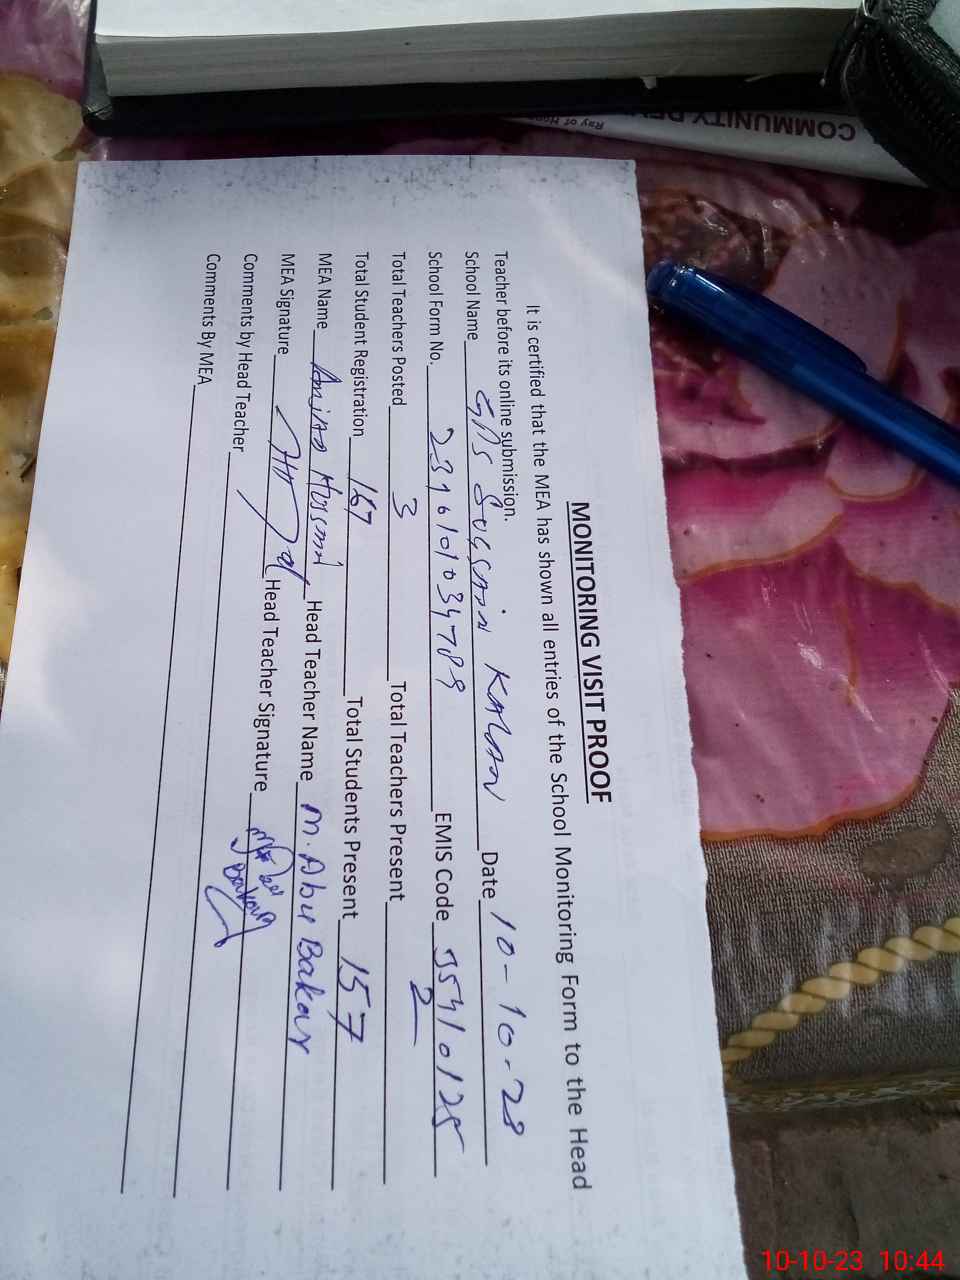 COMMUNITY DEV
Ray of Ho
MONITORING VISIT PROOF
It is certified that the MEA has shown all entries of the School Monitoring Form to the Head
Teacher before its online submission.
School Name GPS Kalan Date 10-10-23
School Form No. EMIS Code 35410125
Total Teachers Posted 3 Total Teachers Present 2
Total Student Registration 167 Total Students Present 157
MEA Name Amjad Hussain Head Teacher Name M. Abu Bakar
MEA Signature Head Teacher Signature
Comments by Head Teacher
Comments By MEA
10-10-23 10:44